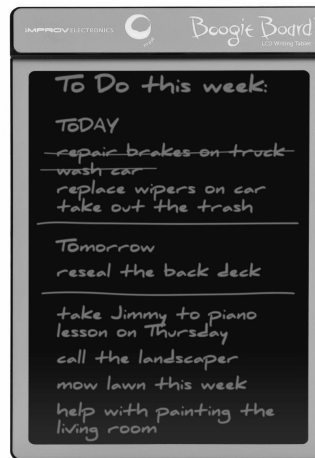 IMPROV ELECTRONICS
Boogie Board
LCD Writing Tablet
To Do this week:
TODAY
repair brakes on truck
wash car
replace wipers on car
take out the trash
Tomorrow
reseal the back deck
take Jimmy to piano
lesson on Thursday
call the landscaper
mow lawn this week
help with painting the
living room